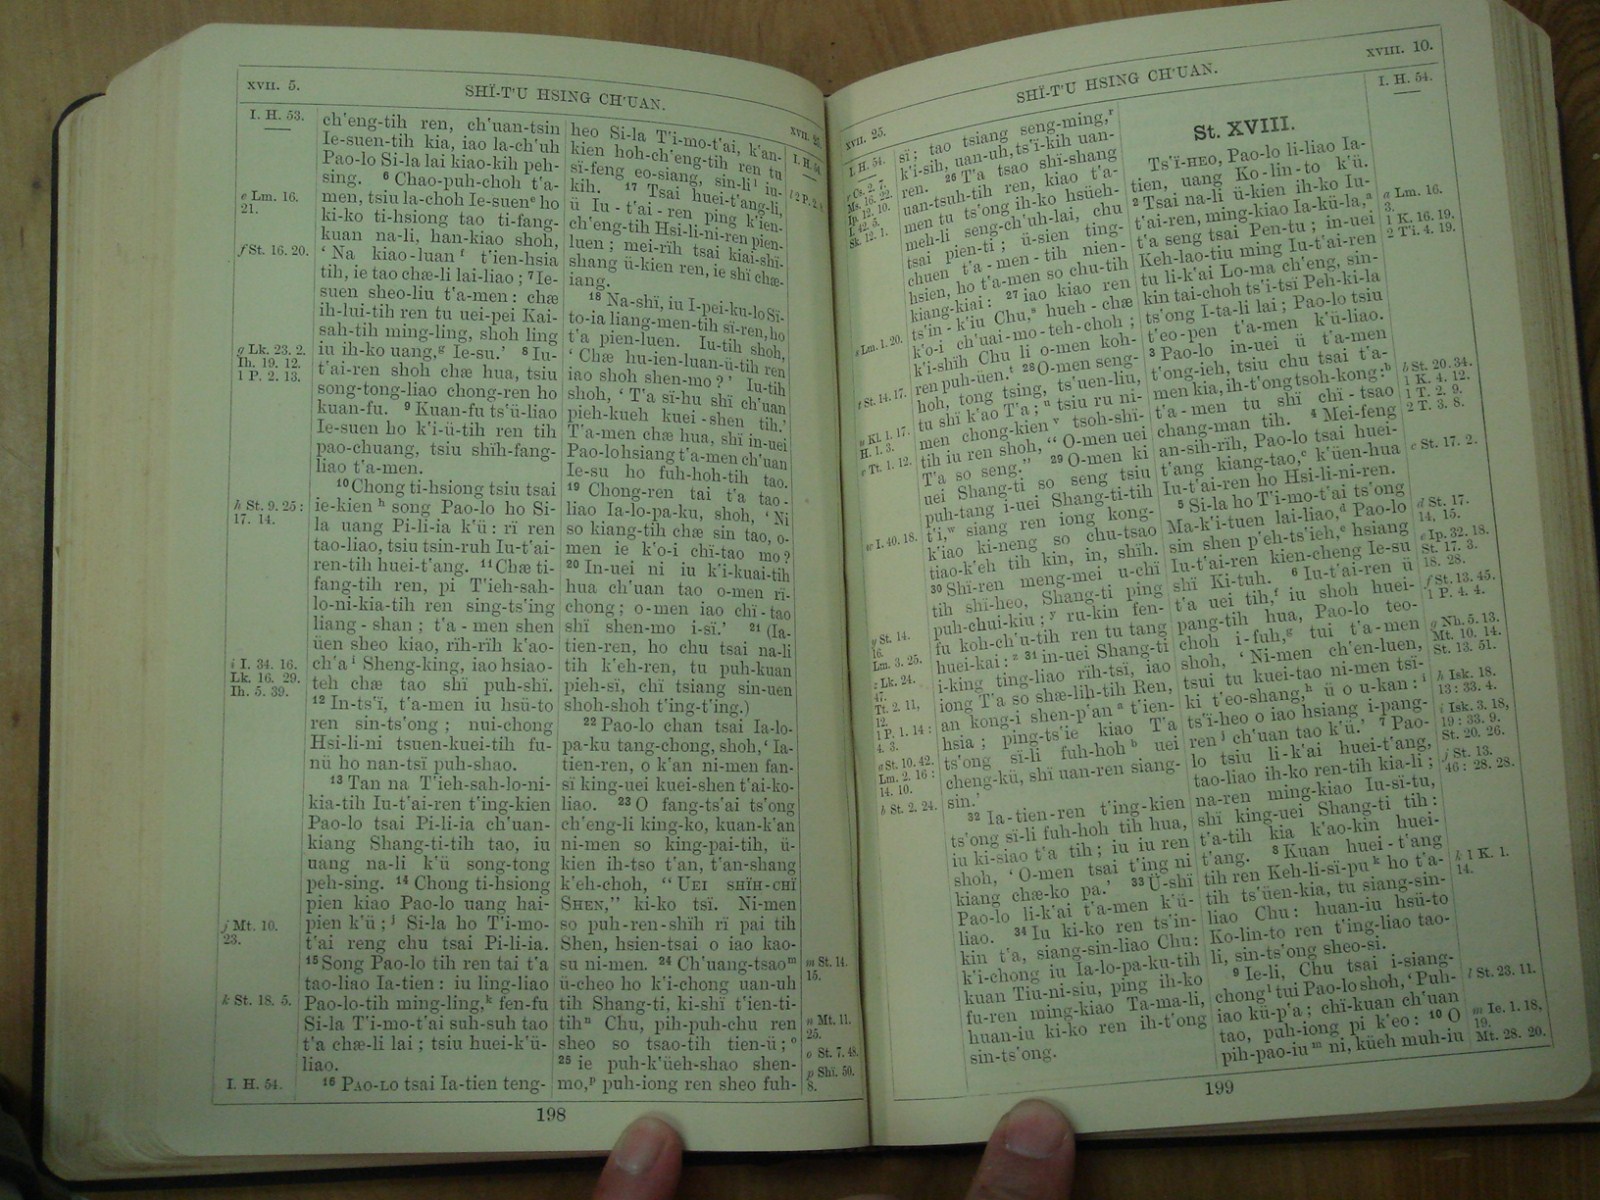 XVII. 5.
SHÏ-T'U HSING CH'UAN.
I. H. 53.
e Lm. 16.
21.
f St. 16. 20.
g Lk. 23. 2.
Ih. 19. 12.
1 P. 2. 13.
h St. 9. 25:
17. 14.
i I. 34. 16.
Lk. 16. 29.
Ih. 5. 39.
j Mt. 10.
23.
k St. 18. 5.
I. H. 54.
ch'eng-tih ren, ch'uan-tsin
Ie-suen-tih kia, iao la-ch'uh
Pao-lo Si-la lai kiao-kih peh-
sing. 6 Chao-puh-choh t'a-
men, tsiu la-choh Ie-suen e ho
ki-ko ti-hsiong tao ti-fang-
kuan na-li, han-kiao shoh,
' Na kiao-luan f t'ien-hsia
tih, ie tao chæ-li lai-liao ; 7 Ie-
suen sheo-liu t'a-men : chæ
ih-lui-tih ren tu uei-pei Kai-
sah-tih ming-ling, shoh ling
iu ih-ko uang, g Ie-su.' 8 Iu-
t'ai-ren shoh chæ hua, tsiu
song-tong-liao chong-ren ho
kuan-fu. 9 Kuan-fu ts'ü-liao
Ie-suen ho k'i-ü-tih ren tih
pao-chuang, tsiu shïh-fang-
liao t'a-men.
10 Chong ti-hsiong tsiu tsai
ie-kien h song Pao-lo ho Si-
la uang Pi-li-ia k'ü : rï ren
tao-liao, tsiu tsin-ruh Iu-t'ai-
ren-tih huei-t'ang. 11 Chæ ti-
fang-tih ren, pi T'ieh-sah-
lo-ni-kia-tih ren sing-ts'ing
liang - shan ; t'a - men shen
üen sheo kiao, rïh-rïh k'ao-
ch'a i Sheng-king, iao hsiao-
teh chæ tao shï puh-shï.
12 In-ts'ï, t'a-men iu hsü-to
ren sin-ts'ong ; nui-chong
Hsi-li-ni tsuen-kuei-tih fu-
nü ho nan-tsï puh-shao.
13 Tan na T'ieh-sah-lo-ni-
kia-tih Iu-t'ai-ren t'ing-kien
Pao-lo tsai Pi-li-ia ch'uan-
kiang Shang-ti-tih tao, iu
uang na-li k'ü song-tong
peh-sing. 14 Chong ti-hsiong
pien kiao Pao-lo uang hai-
pien k'ü ; j Si-la ho T'i-mo-
t'ai reng chu tsai Pi-li-ia.
15 Song Pao-lo tih ren tai t'a
tao-liao Ia-tien : iu ling-liao
Pao-lo-tih ming-ling, k fen-fu
Si-la T'i-mo-t'ai suh-suh tao
t'a chæ-li lai ; tsiu huei-k'ü-
liao.
16 PAO-LO tsai Ia-tien teng-
heo Si-la T'i-mo-t'ai, k'an-
kien hoh-ch'eng-tih ren tu
sï-feng eo-siang, sin-li l iu-
kih. 17 Tsai huei-t'ang-li,
ü Iu - t'ai - ren ping k'ien-
ch'eng-tih Hsi-li-ni-ren pien-
luen ; mei-rïh tsai kiai-shï-
shang ü-kien ren, ie shï chæ-
iang.
18 Na-shï, iu I-pei-ku-lo Sï-
to-ia liang-men-tih sï-ren, ho
t'a pien-luen. Iu-tih shoh,
' Chæ hu-ien-luan-ü-tih ren
iao shoh shen-mo ? ' Iu-tih
shoh, ' T'a sï-hu shï ch'uan
pieh-kueh kuei - shen tih.'
T'a-men chæ hua, shï in-uei
Pao-lo hsiang t'a-men ch'uan
Ie-su ho fuh-hoh-tih tao.
19 Chong-ren tai t'a tao-
liao Ia-lo-pa-ku, shoh, ' Ni
so kiang-tih chæ sin tao, o-
men ie k'o-i chï-tao mo ?
20 In-uei ni iu k'i-kuai-tih
hua ch'uan tao o-men rï-
chong ; o-men iao chï - tao
shï shen-mo i-sï.' 21 (Ia-
tien-ren, ho chu tsai na-li
tih k'eh-ren, tu puh-kuan
pieh-sï, chï tsiang sin-uen
shoh-shoh t'ing-t'ing.)
22 Pao-lo chan tsai Ia-lo-
pa-ku tang-chong, shoh, ' Ia-
tien-ren, o k'an ni-men fan-
sï king-uei kuei-shen t'ai-ko-
liao. 23 O fang-ts'ai ts'ong
ch'eng-li king-ko, kuan-k'an
ni-men so king-pai-tih, ü-
kien ih-tso t'an, t'an-shang
k'eh-choh, " UEI SHÏH-CHÏ
SHEN," ki-ko tsï. Ni-men
so puh-ren-shïh rï pai tih
Shen, hsien-tsai o iao kao-
su ni-men. 24 Ch'uang-tsao m
ü-cheo ho k'i-chong uan-uh
tih Shang-ti, ki-shï t'ien-ti-
tih n Chu, pih-puh-chu ren
sheo so tsao-tih tien-ü ; o
25 ie puh-k'üeh-shao shen-
mo, p puh-iong ren sheo fuh-
I. H. 54.
m St. 14.
15.
n Mt. 11.
25.
o St. 7. 48.
p Shï. 50.
8.
198
XVII. 25.
SHÏ-T'U HSING CH'UAN.
XVIII. 10.
I. H. 54.
Ms. 16. 22.
s Lm. 1. 20.
t St. 14. 17.
u Kl. 1. 17.
H. 1. 3.
v Tt. 1. 12.
w I. 40. 18.
y St. 14.
16.
Lm. 3. 25.
z Lk. 24.
47.
Tt. 2. 11,
12.
1 P. 1. 14 :
4. 3.
a St. 10. 42.
Lm. 2. 16 :
14. 10.
b St. 2. 24.
sï ; tao tsiang seng-ming, r
k'i-sih, uan-uh, ts'ï-kih uan-
ren. 26 T'a tsao shï-shang
uan-tsuh-tih ren, kiao t'a-
men tu ts'ong ih-ko hsüeh-
meh-li seng-ch'uh-lai, chu
tsai pien-ti ; ü-sien ting-
chuen t'a - men - tih nien-
hsien, ho t'a-men so chu-tih
kiang-kiai : 27 iao kiao ren
ts'in - k'iu Chu, s hueh - chæ
k'o-i ch'uai-mo-teh-choh ;
k'i-shïh Chu li o-men koh-
ren puh-üen. t 28 O-men seng-
hoh, tong tsing, ts'uen-liu,
tu shï k'ao T'a ; u tsiu ru ni-
men chong-kien v tsoh-shï-
tih iu ren shoh, " O-men uei
T'a so seng." 29 O-men ki
uei Shang-ti so seng tsiu
puh-tang i-uei Shang-ti-tih
t'i, w siang ren iong kong-
k'iao ki-neng so chu-tsao
tiao-k'eh tih kin, in, shïh.
30 Shï-ren meng-mei u-chï
tih shï-heo, Shang-ti ping
puh-chui-kiu ; y ru-kin fen-
fu koh-ch'u-tih ren tu tang
huei-kai : z 31 in-uei Shang-ti
i-king ting-liao rïh-tsï, iao
iong T'a so shæ-lih-tih Ren,
an kong-i shen-p'an a t'ien-
hsia ; ping-ts'ie kiao T'a
ts'ong sï-li fuh-hoh b uei
cheng-kü, shï uan-ren siang-
sin.'
32 Ia-tien-ren t'ing-kien
ts'ong sï-li fuh-hoh tih hua,
iu ki-siao t'a tih ; iu iu ren
shoh, ' O-men tsai t'ing ni
kiang chæ-ko pa.' 33 Ü-shï
Pao-lo li-k'ai t'a-men k'ü-
liao. 34 Iu ki-ko ren ts'in-
kin t'a, siang-sin-liao Chu :
k'i-chong iu Ia-lo-pa-ku-tih
kuan Tiu-ni-siu, ping ih-ko
fu-ren ming-kiao Ta-ma-li,
huan-iu ki-ko ren ih-t'ong
sin-ts'ong.
St. XVIII.
Ts'ï-HEO, Pao-lo li-liao Ia-
tien, uang Ko-lin-to k'ü.
2 Tsai na-li ü-kien ih-ko Iu-
t'ai-ren, ming-kiao Ia-kü-la, a
t'a seng tsai Pen-tu ; in-uei
Keh-lao-tiu ming Iu-t'ai-ren
tu li-k'ai Lo-ma ch'eng, sin-
kin tai-choh ts'i-tsï Peh-ki-la
ts'ong I-ta-li lai ; Pao-lo tsiu
t'eo-pen t'a-men k'ü-liao.
3 Pao-lo in-uei ü t'a-men
t'ong-ieh, tsiu chu tsai t'a-
men kia, ih-t'ong tsoh-kong : b
t'a - men tu shï chï - tsao
chang-man tih. 4 Mei-feng
an-sih-rïh, Pao-lo tsai huei-
t'ang kiang-tao, c k'üen-hua
Iu-t'ai-ren ho Hsi-li-ni-ren.
5 Si-la ho T'i-mo-t'ai ts'ong
Ma-k'i-tuen lai-liao, d Pao-lo
sin shen p'eh-ts'ieh, e hsiang
Iu-t'ai-ren kien-cheng Ie-su
shï Ki-tuh. 6 Iu-t'ai-ren ü
t'a uei tih, f iu shoh huei-
pang-tih hua, Pao-lo teo-
choh i-fuh, g tui t'a-men
shoh, ' Ni-men ch'en-luen,
tsui tu kuei-tao ni-men tsï-
ki t'eo-shang, h ü o u-kan : i
ts'ï-heo o iao hsiang i-pang-
ren j ch'uan tao k'ü.' 7 Pao-
lo tsiu li-k'ai huei-t'ang,
tao-liao ih-ko ren-tih kia-li ;
na-ren ming-kiao Iu-sï-tu,
shï king-uei Shang-ti tih :
t'a-tih kia k'ao-kin huei-
t'ang. 8 Kuan huei-t'ang
tih ren Keh-li-sï-pu k ho t'a-
tih ts'üen-kia, tu siang-sin-
liao Chu : huan-iu hsü-to
Ko-lin-to ren t'ing-liao tao-
li, sin-ts'ong sheo-si.
9 Ie-li, Chu tsai i-siang-
chong l tui Pao-lo shoh, ' Puh-
iao kü-p'a ; chï-kuan ch'uan
tao, puh-iong pi k'eo : 10 O
pih-pao-iu m ni, küeh muh-iu
I. H. 54.
a Lm. 16.
3.
1 K. 16. 19.
2 T'i. 4. 19.
b St. 20. 34.
1 K. 4. 12.
1 T. 2. 9.
2 T. 3. 8.
c St. 17. 2.
d St. 17.
14, 15.
e Ip. 32. 18.
St. 17. 3.
18. 28.
f St. 13. 45.
1 P. 4. 4.
g Nh. 5. 13.
Mt. 10. 14.
St. 13. 51.
h Isk. 18.
13 : 33. 4.
i Isk. 3. 18,
19 : 33. 9.
St. 20. 26.
j St. 13.
46 : 28. 28.
k 1 K. 1.
14.
l St. 23. 11.
m Ie. 1. 18,
19.
Mt. 28. 20.
199